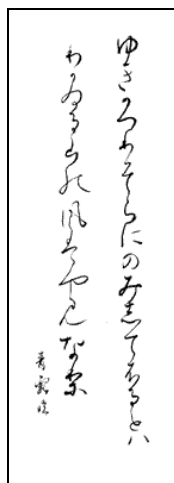 ゆきかへりそらにのみしてふることは
わかゐる山の風はやみなり